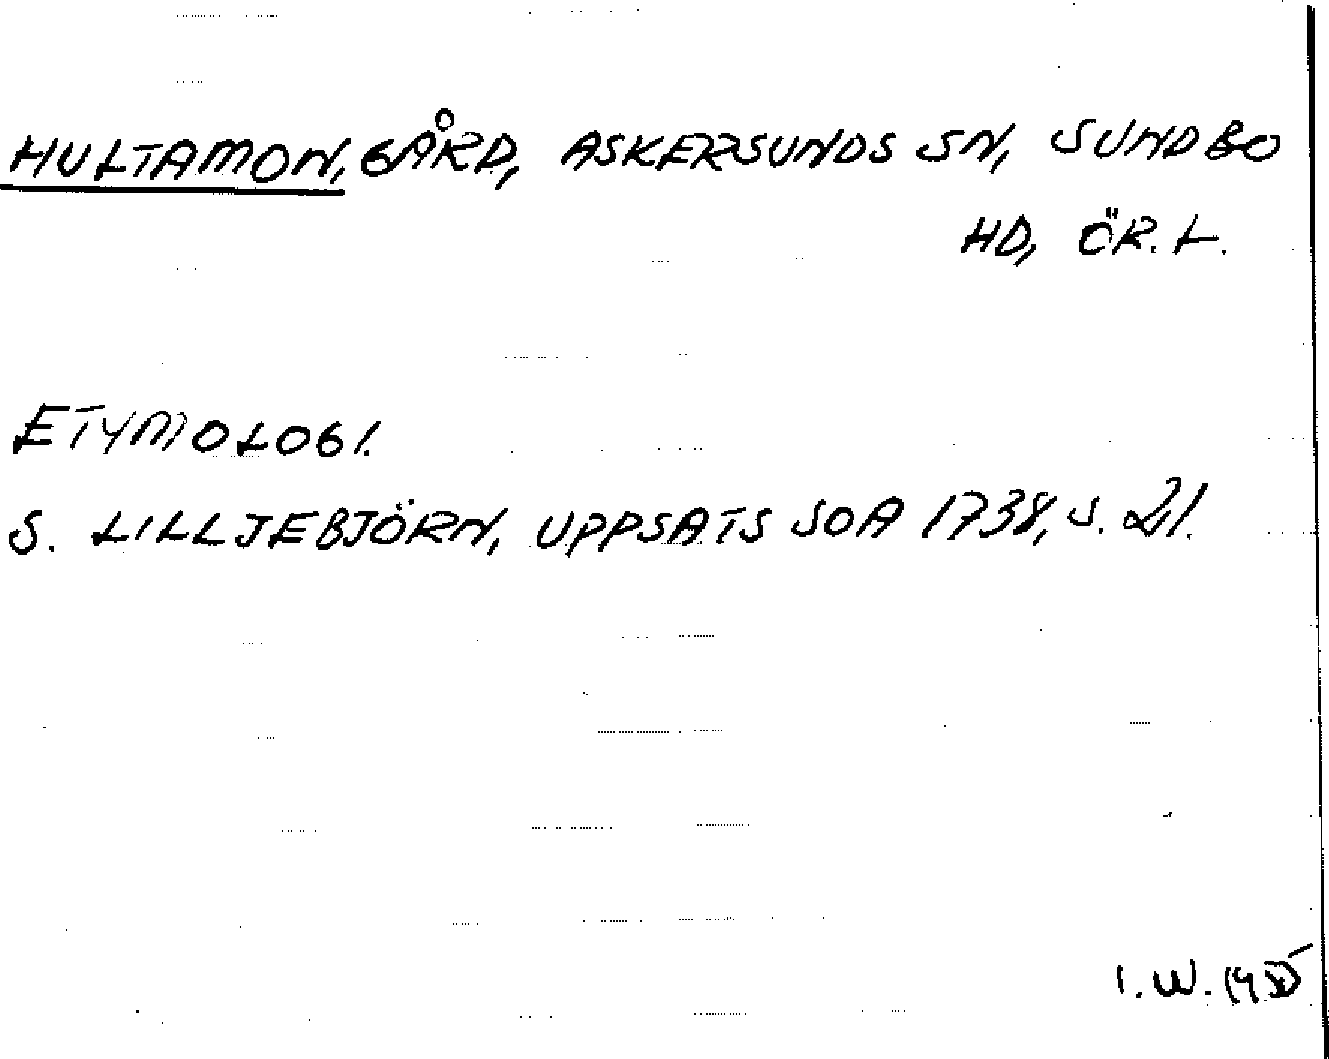 HULTAMON, GÅRD, ASKERSUNDS SN, SUNDBO
HD, ÖR. L.
ETYMOLOGI.
S. LILLJEBJÖRN, UPPSATS SOA 1738, S. 21.
I.W.